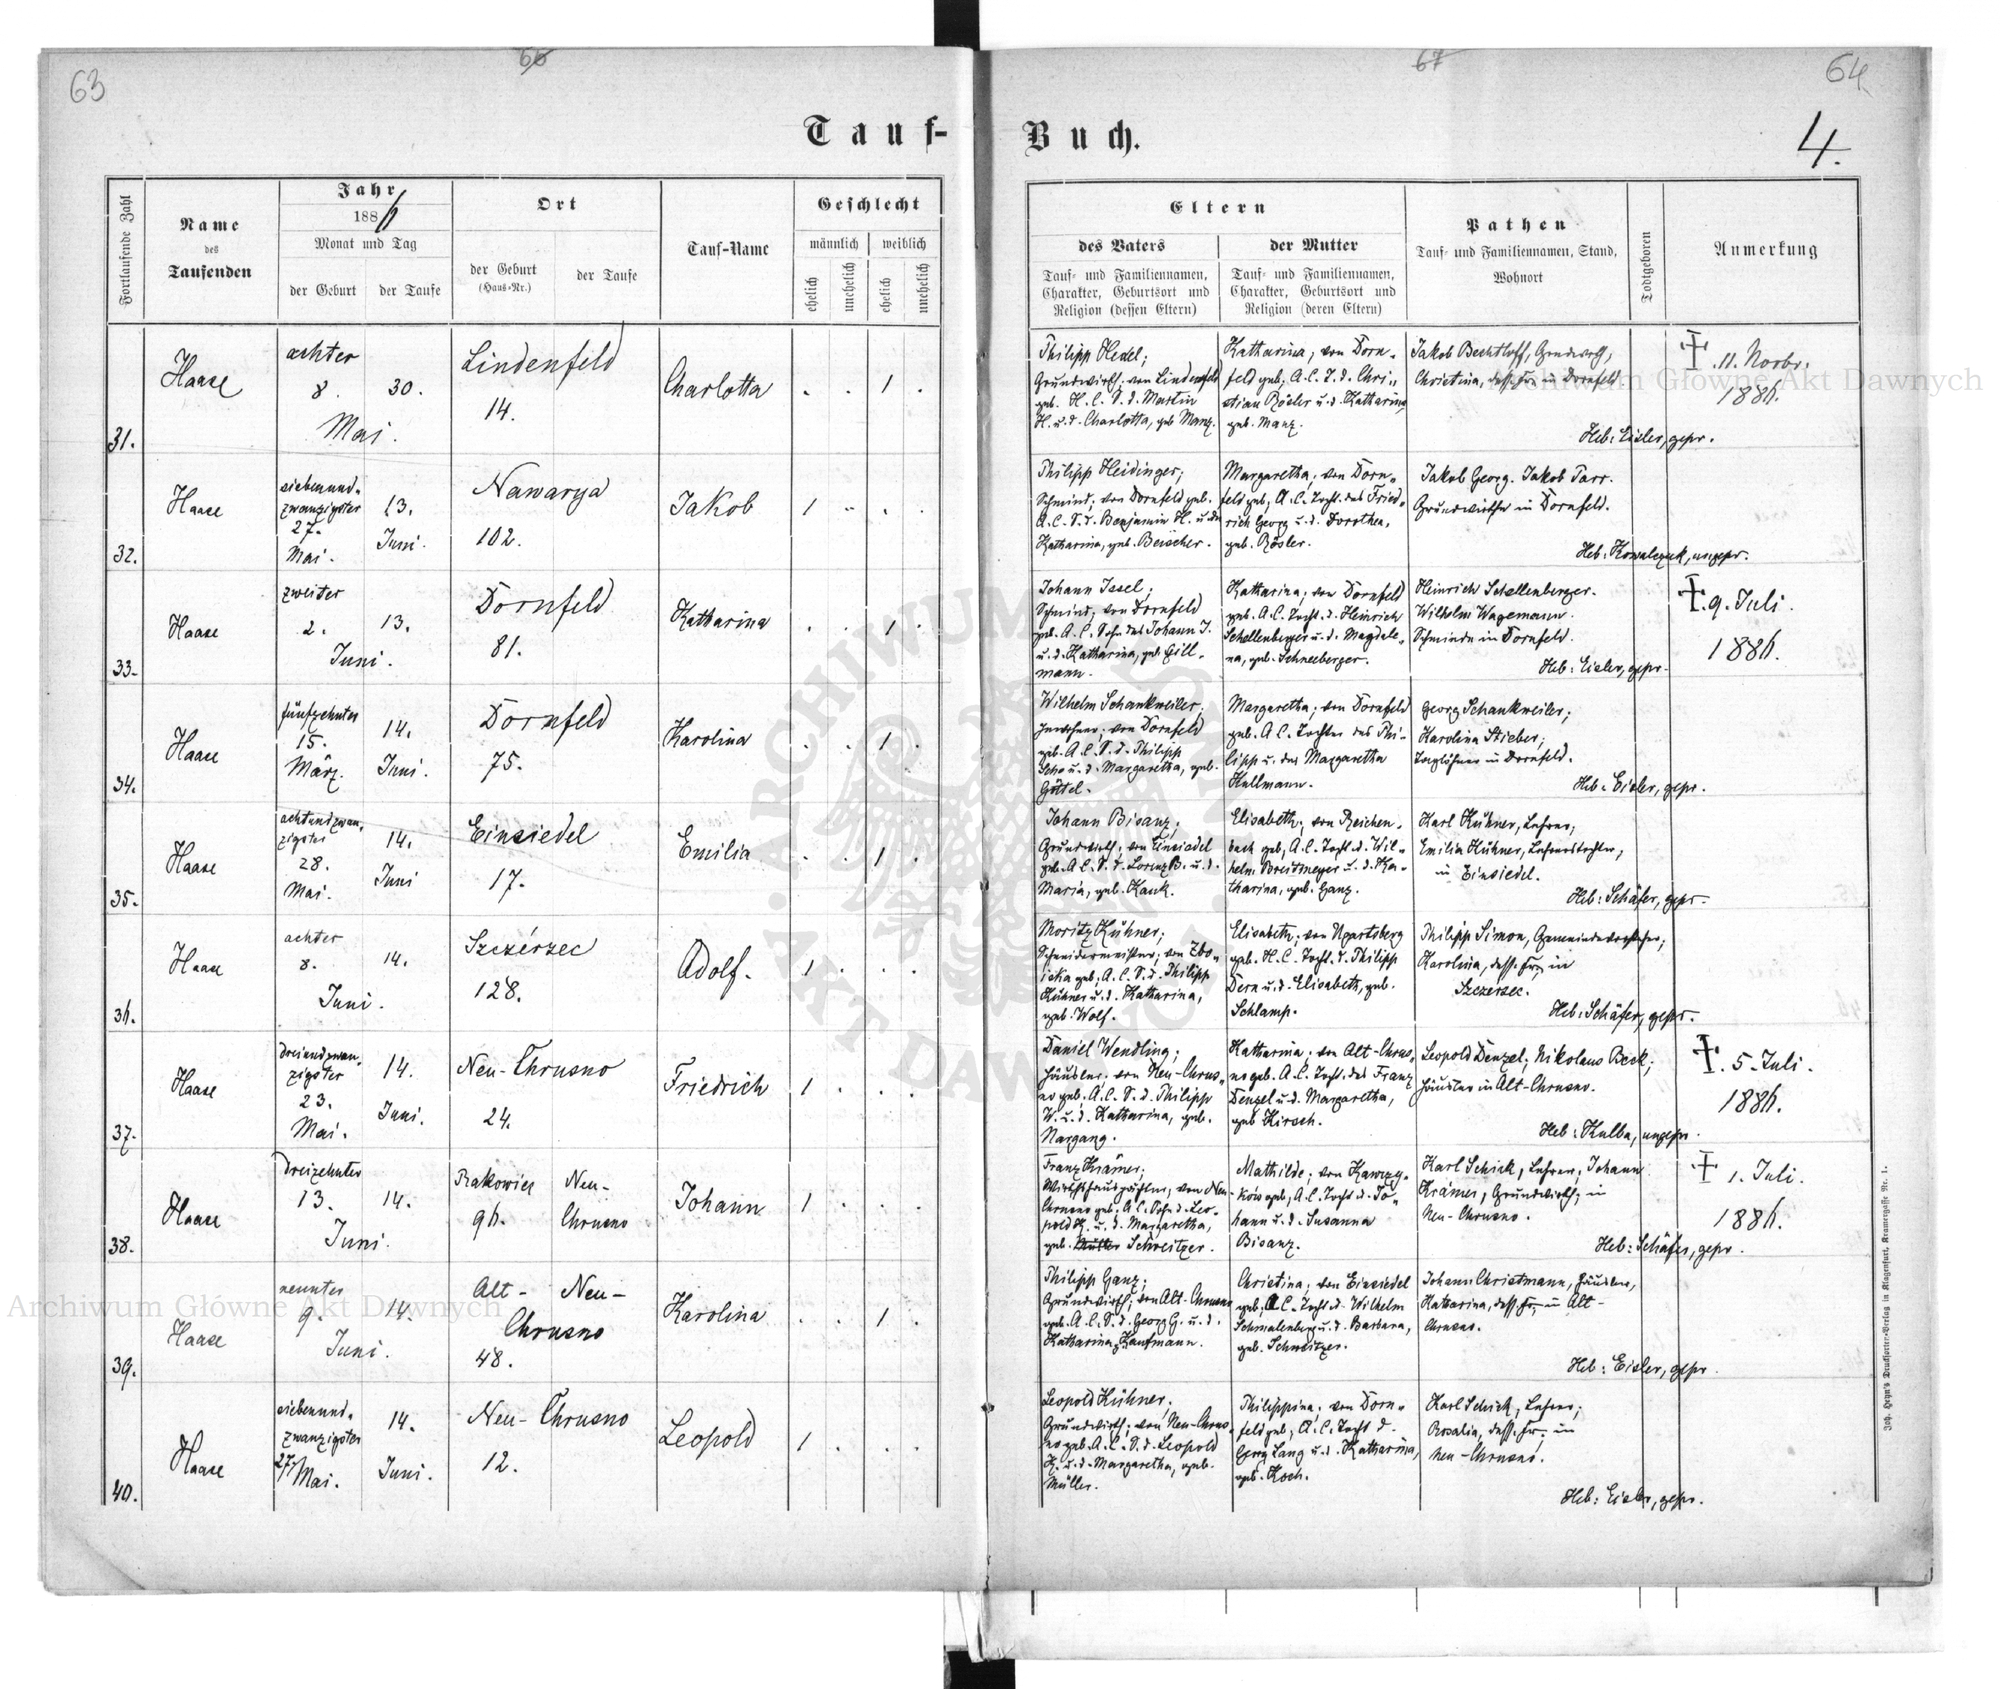 63
66
67
64
Tauf-
Buch.
4.
Fortlaufende Zahl
Name
des
Taufenden
Jahr
1886
Monat und Tag
der Geburt
der Taufe
Ort
der Geburt
(Haus-Nr.)
der Taufe
Tauf-Name
Geschlecht
männlich
weiblich
ehelich
unehelich
ehelich
unehelich
Eltern
des Vaters
Tauf- und Familiennamen,
Charakter, Geburtsort und
Religion (dessen Eltern)
der Mutter
Tauf- und Familiennamen,
Charakter, Geburtsort und
Religion (deren Eltern)
Pathen
Tauf- und Familiennamen, Stand,
Wohnort
Todtgeboren
Anmerkung
31.
Haase
achter
8. 30.
Mai.
Lindenfeld
14.
Charlotta
. . 1 .
Philipp Hedel;
Grundwirth; von Lindenfeld
geb. H. C. S. d. Martin
H. u. d. Charlotta, geb. Manz.
Katharina; von Dorn-
feld geb; A. C. T. d. Chri-
stian Rösler u. d. Katharina,
geb. Manz.
Jakob Bechtloff, Grundwirth;
Christina, dess. Fr. in Dornfeld
Heb: Eisler, gepr.
† 11. Novbr.
1886.
32.
Haase
siebenund-
zwanzigster
27.
Mai.
13.
Juni.
Nawarya
102.
Jakob
1 . . .
Philipp Heidinger;
Schmied; von Dornfeld geb.
A. C. S. d. Benjamin H. u. der
Katharina, geb. Beischer.
Margaretha; von Dorn-
feld geb; A. C. Tocht. des Fried-
rich Georg u. d. Dorothea,
geb. Rösler.
Jakob Georg. Jakob Parr.
Grundwirthe in Dornfeld.
Heb: Kowalczuk, ungepr.
33.
Haase
zweiter
2. 13.
Juni.
Dornfeld
81.
Katharina
. . 1 .
Johann Issel;
Schmied; von Dornfeld
geb. A. C. Sohn des Johann I.
u. d. Katharina, geb. Gill-
mann.
Katharina; von Dornfeld
geb. A. C. Tocht. d. Heinrich
Schellenberger u. d. Magdale-
na, geb. Schneeberger.
Heinrich Schellenberger.
Wilhelm Wagemann.
Schmiede in Dornfeld.
Heb: Eisler, gepr.
† 9. Juli.
1886.
34.
Haase
fünfzehnter
15.
März.
14.
Juni.
Dornfeld
75.
Karolina
. . 1 .
Wilhelm Schankweiler;
Inwohner; von Dornfeld
geb. A. C. S. d. Philipp
Sch. u. d. Margaretha, geb.
Göttel.
Margaretha; von Dornfeld
geb. A. C. Tochter des Phi-
lipp u. der Margaretha
Kullmann.
Georg Schankweiler;
Karolina Stieber;
Taglöhner in Dornfeld.
Heb: Eisler, gepr.
35.
Haase
achtundzwan-
zigster
28.
Mai.
14.
Juni
Einsiedel
17.
Emilia
. . 1 .
Johann Bisanz;
Grundwirth; von Einsiedel
geb. A. C. S. d. Lorenz B. u. d.
Maria, geb. Kauk.
Elisabeth; von Reichen-
bach geb; A. C. Tocht. d. Wil-
helm Breitmeyer u. d. Ka-
tharina, geb. Ganz.
Karl Kühner, Lehrer;
Emilia Kühner, Lehrerstochter;
in Einsiedel.
Heb: Schäfer, gepr.
36.
Haase
achter
8. 14.
Juni.
Szczérzec
128.
Adolf.
1 . . .
Moritz Kühner;
Schneidermeister; von Zbo-
iska geb; A. C. S. d. Philipp
Kühner u. d. Katharina,
geb. Wolf.
Elisabeth; von Ugartsberg
geb. H. C. Tocht. d. Philipp
Dern u. d. Elisabeth, geb.
Schlamp.
Philipp Simon, Gemeindevorsteher;
Karolina, dess. Fr. in
Szczérzec.
Heb: Schäfer, gepr.
37.
Haase
dreiundzwan-
zigster
23.
Mai.
14.
Juni.
Neu-Chrusno
24.
Friedrich
1 . . .
Daniel Wendling;
Häusler. von Neu-Chrus-
no geb. A. C. S. d. Philipp
W. u. d. Katharina, geb.
Nargang.
Katharina; von Alt-Chrus-
no geb. A. C. Tocht. des Franz
Denzel u. d. Margaretha,
geb. Kirsch.
Leopold Denzel; Nikolaus Beck;
Häusler in Alt-Chrusno.
Heb: Kulba, ungepr.
† 5. Juli.
1886.
38.
Haase
dreizehnter
13. 14.
Juni.
Rakowiec Neu-
96. Chrusno
Johann
1 . . .
Franz Krämer;
Wirthshauspächter, von Neu-
Chrusno geb. A. C. Sohn d. Leo-
pold K. u. d. Margaretha,
geb. Müller Schweitzer.
Mathilde; von Kawczy-
ków geb, A. C. Tocht. d. Jo-
hann u. d. Susanna
Bisanz.
Karl Schick, Lehrer; Johann
Krämer, Grundwirth; in
Neu-Chrusno.
Heb: Schäfer, gepr.
† 1. Juli.
1886.
39.
Haase
neunter
9. 14.
Juni.
Alt- Neu-
Chrusno
48.
Karolina
. . 1 .
Philipp Ganz;
Grundwirth; von Alt-Chrusno
geb. A. C. S. d. Georg G. u. d.
Katharina Kaufmann.
Christina; von Einsiedel
geb; A. C. Tocht. d. Wilhelm
Schmalenberg u. d. Barbara,
geb. Schweitzer.
Johann Christmann, Häusler,
Katharina, dess. Fr. in Alt-
Chrusno.
Heb: Eisler, gepr.
40.
Haase
siebenund-
zwanzigster
27.
Mai.
14.
Juni.
Neu-Chrusno
12.
Leopold
1 . . .
Leopold Kühner;
Grundwirth; von Neu-Chrus-
no geb. A. C. S. d. Leopold
K. u. d. Margaretha, geb.
Müller.
Philippina; von Dorn-
feld geb, A. C. Tocht. d.
Georg Lang u. d. Katharina,
geb. Koch.
Karl Schick, Lehrer;
Rosalia, dess. Fr. in
Neu-Chrusno.
Heb: Eisler, gepr.
Joh. Heyn's Drucksorten-Verlag in Klagenfurt, Kramergasse Nr. 1.
Archiwum Główne Akt Dawnych
Archiwum Główne Akt Dawnych
ARCHIWUM
AKT DAWNYCH